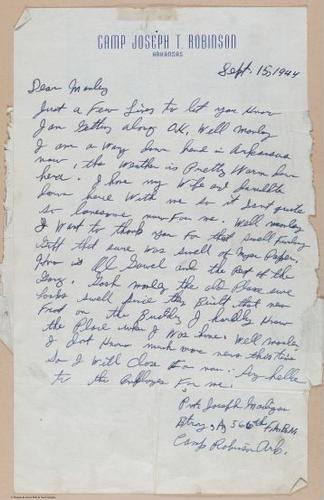 CAMP JOSEPH T. ROBINSON
ARKANSAS
Sept. 15, 1944
Dear Morley
Just a Few Lines to let you Know
I am Getting along O.K. Well Morley
I am a Way down here in Arkansas
now, the Weather is Pretty Warm down
here. I have my Wife and
down here With me so it dont quite
so lonesome now For me. Well Morley
I Want to thank you For that swell Farley
Gift that sure was swell of your Paper,
How is Ol and the Rest of the
Gang, Gosh Morley the old Place sure
looks swell since they Built that new
Front on the Buildin I hardly Knew
the Place when I Was home. Well Morley
I dont Know much more news this time
So I Will Close For now. Say hello
to the Employees For me.
Pvt. Joseph
Btry 566th F.A. Bn.
Camp Robinson Ark.